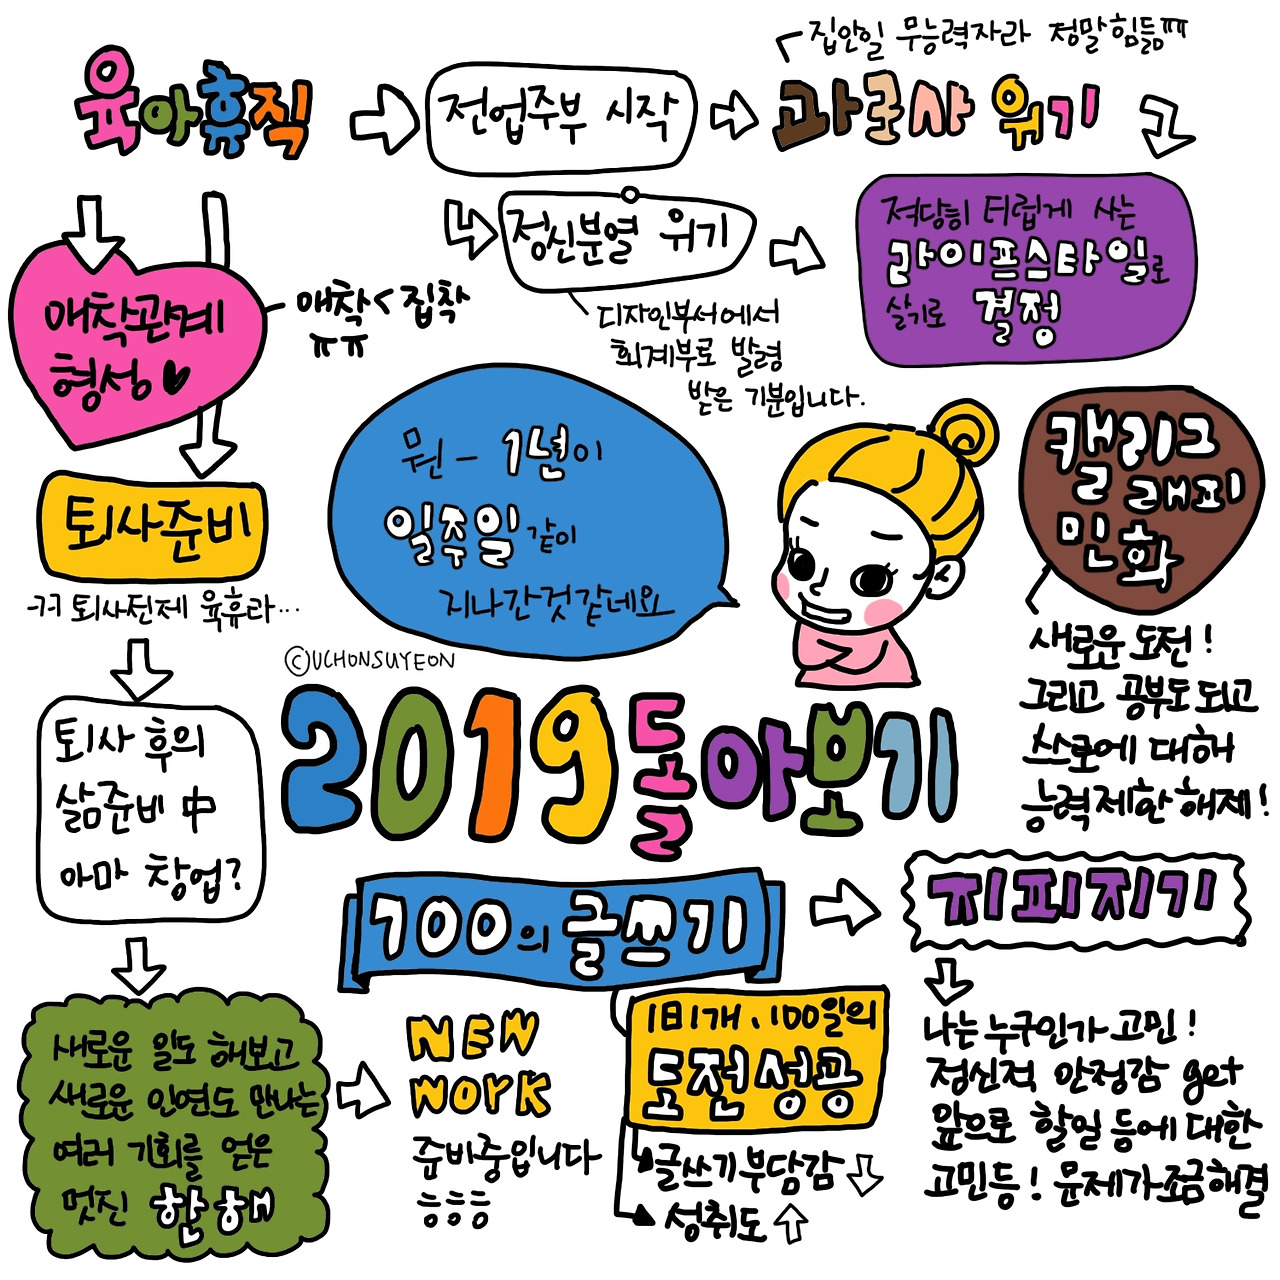 집안일 무능력자라 정말힘듦ㅠㅠ
육아휴직
전업주부 시작
과로사 위기
정신분열 위기
적당히 더럽게 사는
라이프스타일로
살기로 결정
애착관계
형성
애착<집착
ㅠㅠ
디자인부서에서
회계부로 발령
받은 기분입니다.
뭔-1년이
일주일같이
지나간것같네요
캘리그
래피
민화
퇴사준비
퇴사전제 육휴라...
새로운 도전!
그리고 공부도 되고
스스로에 대해
능력제한해제!
©UCHONSUYEON
2019돌아보기
퇴사 후의
삶준비 中
아마 창업?
100의 글쓰기
찌피지기
1日1개, 100일의
도전성공
글쓰기부담감
성취도
나는누구인가고민!
정신적 안정감 get
앞으로 할일 등에대한
고민등! 문제가조금해결
새로운 일도 해보고
새로운 인연도 만나는
여러 기회를 얻은
멋진 한해
NEW
WORK
준비중입니다
ㅎㅎㅎ